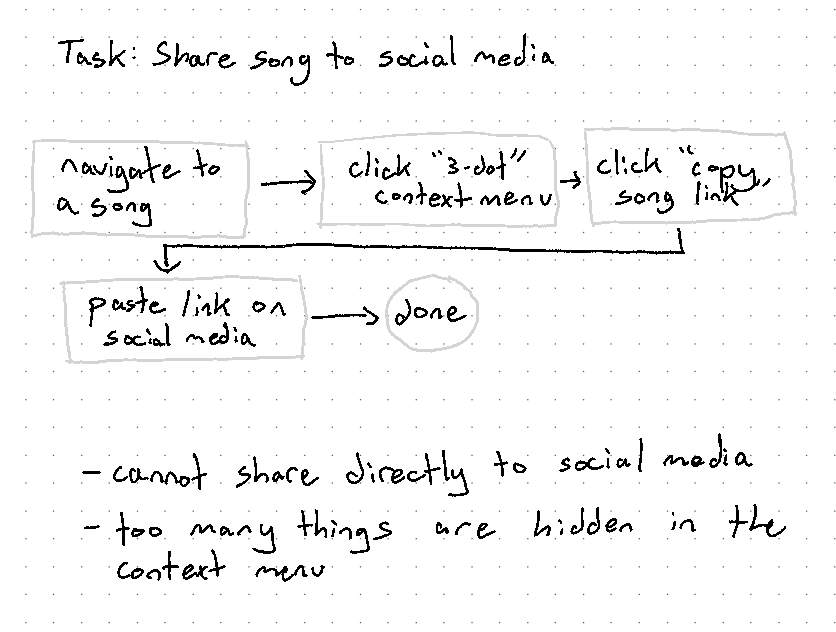 Task: Share song to social media
navigate to
a song
click "3-dot"
context menu
click "copy
song link"
paste link on
social media
done
- cannot share directly to social media
- too many things are hidden in the
context menu